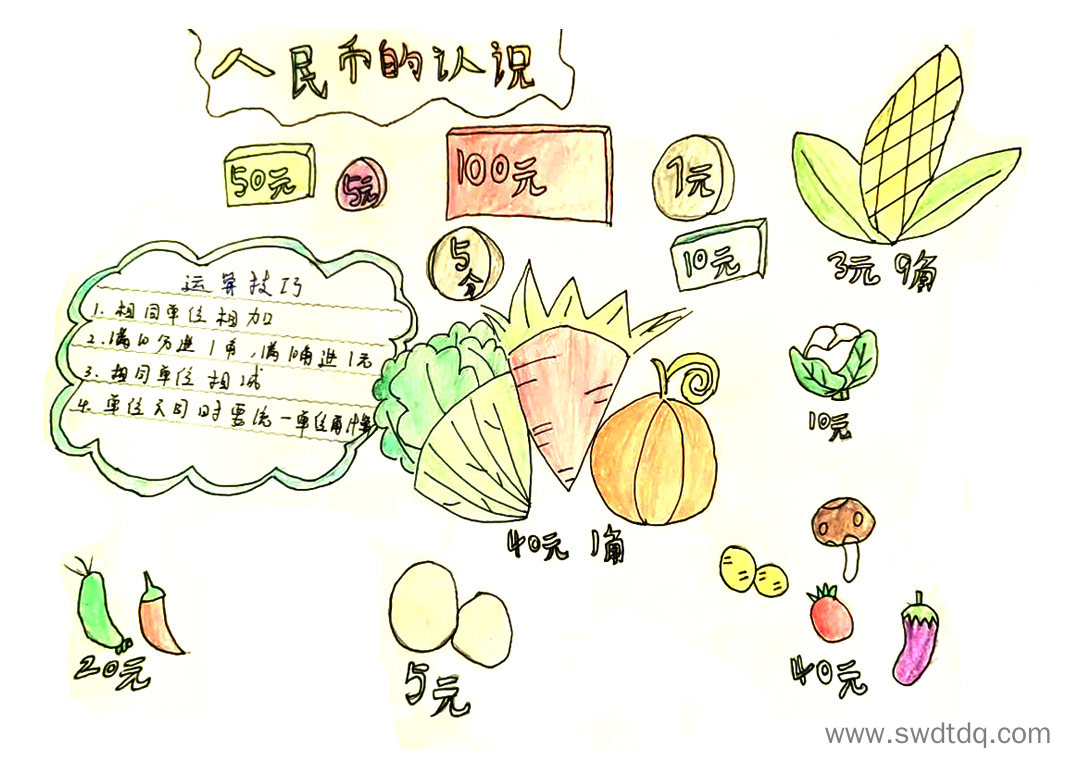 人民币的认识
50元
5元
100元
1元
5分
10元
3元 9角
运算技巧
1. 相同单位相加
2. 满10分进1角,满10角进1元
3. 相同单位相减
4. 单位不同时要统一单位再计算
10元
40元 1角
20元
5元
40元
www.swdtdq.com